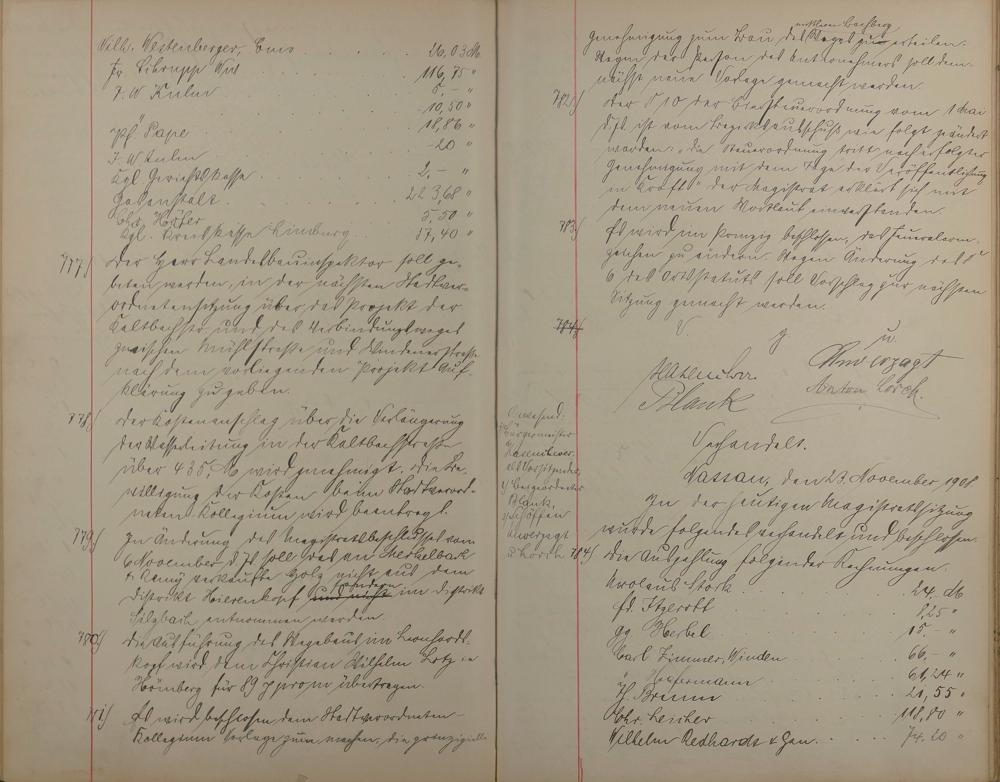 Wilh. Westenberger, Ems 26,03 M
Fr. Wwe 116,75 "
F. W. Kuhn 5,- "
" 10,50 "
Ph. Pape 18,86 "
F. W. Kuhn -20 "
Kgl. Gerichtskasse 2,- "
Gasanstalt 223,68 "
Chr. Höfer 5,50 "
Kgl. Kreiskasse Limburg 17,40 "
777/ Der Herr Landesbauinspektor soll ge-
beten werden, in der nächsten Stadtver-
ordnetensitzung über das Projekt der
Kaltbachstr. und des Verbindungsweges
zwischen Mühlstraße und Windenerstraße
nach dem vorliegenden Projekt Auf-
klärung zu geben.
778/ Der Kostenanschlag über die Verlängerung
der Wasserleitung in der Kaltbachstraße
über 435,- M wird genehmigt. Die Be-
willigung der Kosten beim Stadtverord-
neten Kollegium wird beantragt.
779/ In Änderung des Magistratsbeschlusses vom
6 November d. Js. soll das an Merkelbach
& Remy verkaufte Holz nicht aus dem
Distrikt Hierenkopf und nicht sondern im Distrikt
Silzbach entnommen werden.
780/ Die Ausführung des Wegebaus im Leonhards-
kopf wird dem Christian Wilhelm Lotz in
Hömberg für 89 Pf pro m übertragen.
781/ Es wird beschlossen dem Stadtverordneten-
Kollegium Vorlage zu machen, die prinzipielle
Genehmigung zum Bau des mittleren Wegs zu erteilen.
Wegen der Person des Unternehmers soll dem-
nächst neue Vorlage gemacht werden.
782/ Der § 10 der Biersteuerordnung vom 1 Mai
d. Js. ist vom Bezirksausschuß wie folgt geändert
worden: "die Steuerordnung tritt nach erfolgter
Genehmigung mit dem Tage der Veröffentlichung
in Kraft." Der Magistrat erklärt sich mit
dem neuen Wortlaut einverstanden.
783/ Es wird im Prinzip beschlossen, das Feueralarm-
zeichen zu ändern. Wegen Änderung des §
6 des Ortsstatuts soll Vorschlag zur nächsten
Sitzung gemacht werden.
784/ V. g. u.
Hasenclever Unverzagt
Plank Anton Lorch.
Verhandelt.
Nassau, den 23. November 1908
Anwesend:
Bürgermeister
Hasenclever
als Vorsitzender,
Beigeordneter
Plank,
Schöffen
Unverzagt
u. Lorch
In der heutigen Magistratssitzung
wurde folgendes verhandelt und beschlossen.
784/ Die Auszahlung folgender Rechnungen.
Stork 24,- M
Fd. Itzerott 8,25 "
Gg. Herbel 15,- "
Carl Zimmer, Winden 66,- "
" 61,24 "
H. Bremm 21,55 "
Chr. 118,80 "
Wilhelm & Gen. 74,20 "